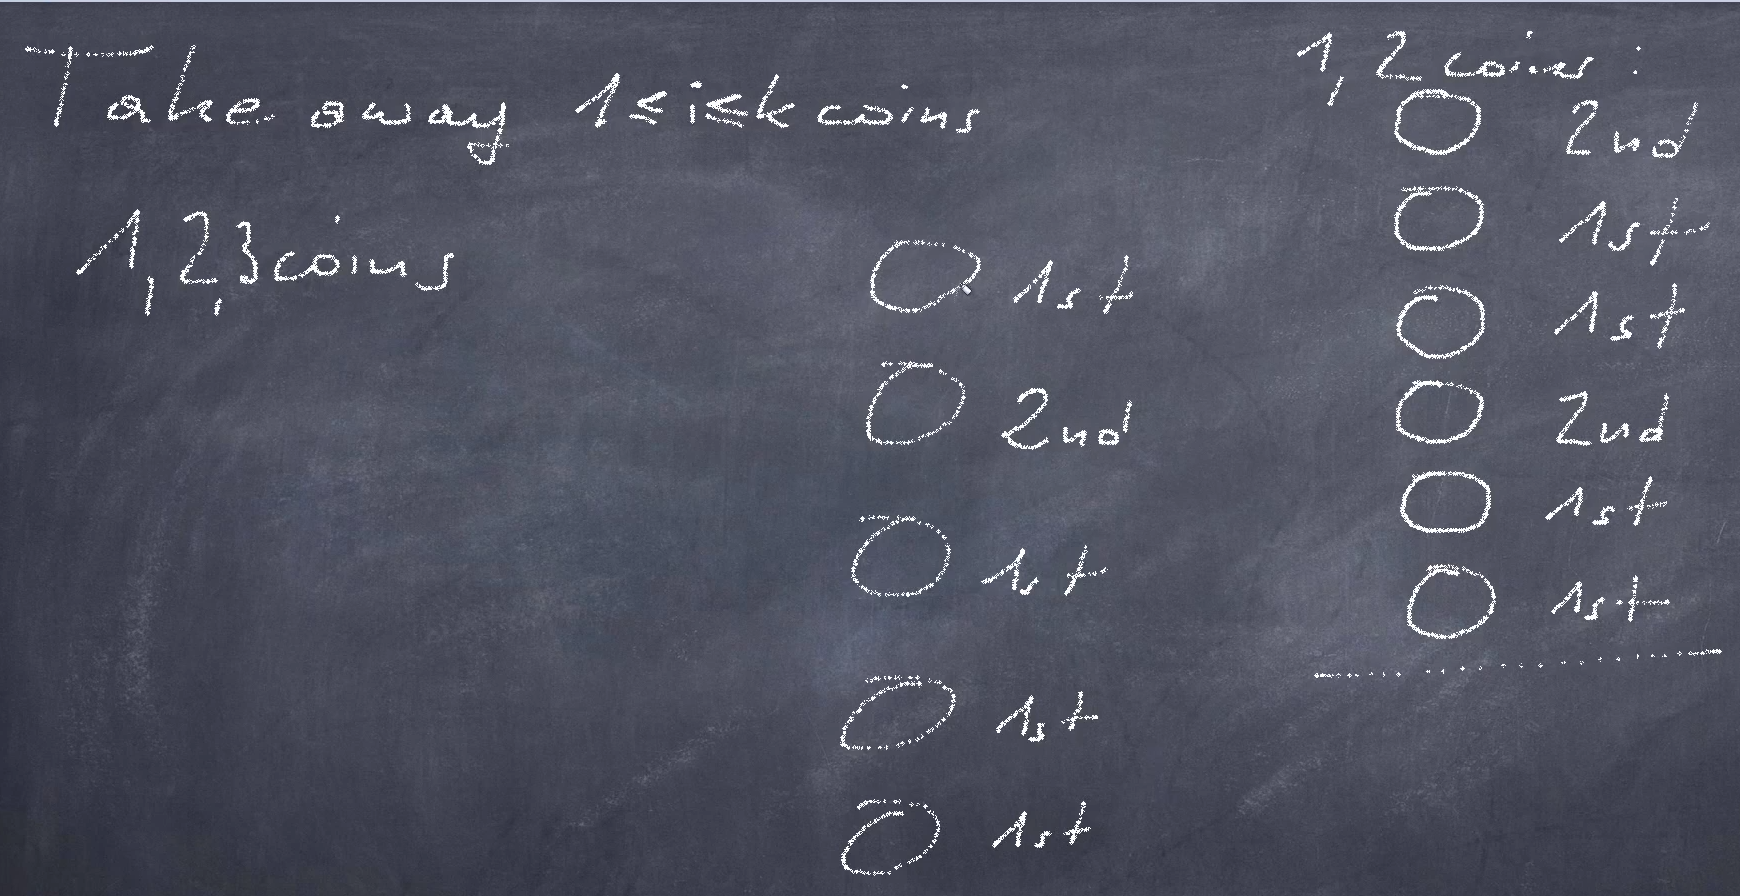 Take away 1≤i≤k coins
1,2,3 coins
1st
2nd
1st
1st
1st
1,2 coins:
2nd
1st
1st
2nd
1st
1st